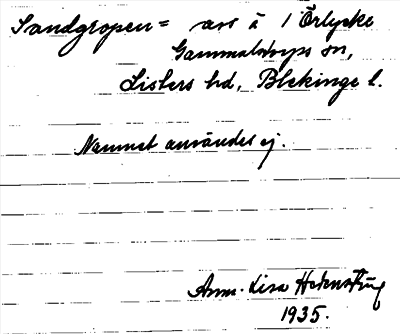 Sandgropen = avs å 1 Örlycke
Gammalstorps sn,
Listers hd, Blekinge l.
Namnet användes ej.
Ann-Lisa
1935.